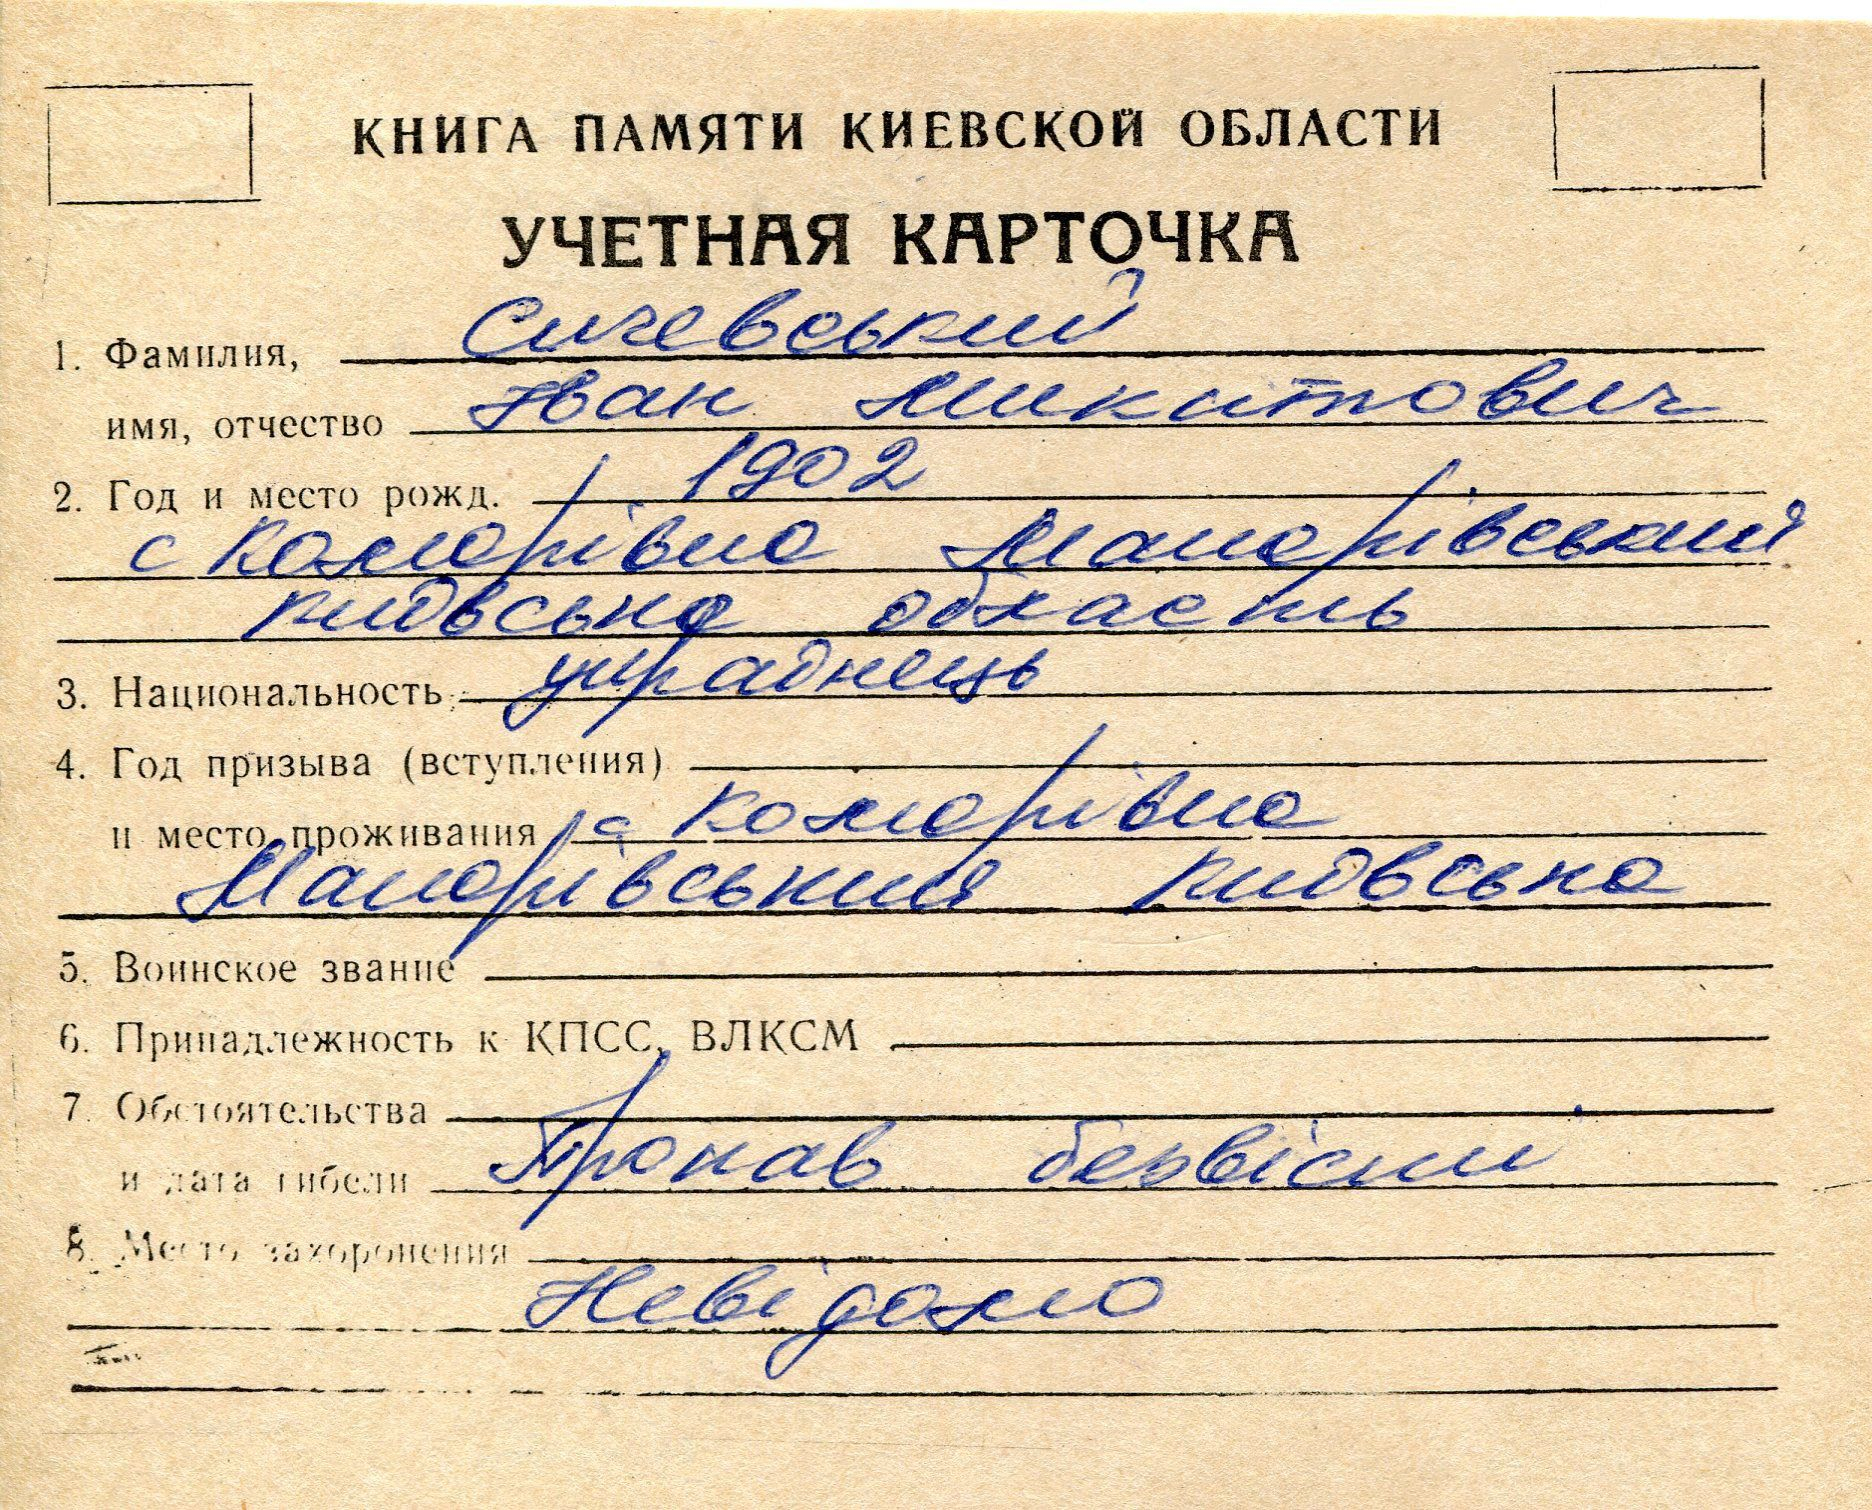 КНИГА ПАМЯТИ КИЕВСКОЙ ОБЛАСТИ
УЧЕТНАЯ КАРТОЧКА
1. Фамилия, Сичевський
имя, отчество Іван Микитович
2. Год и место рожд. 1902
с Комарівка Макарівський
київська область
3. Национальность українець
4. Год призыва (вступления)
и место проживания с Комарівка
Макарівський київська
5. Воинское звание
6. Принадлежность к КПСС, ВЛКСМ
7. Обстоятельства
и дата гибели Пропав безвісти
8. Место захоронения
Невідомо